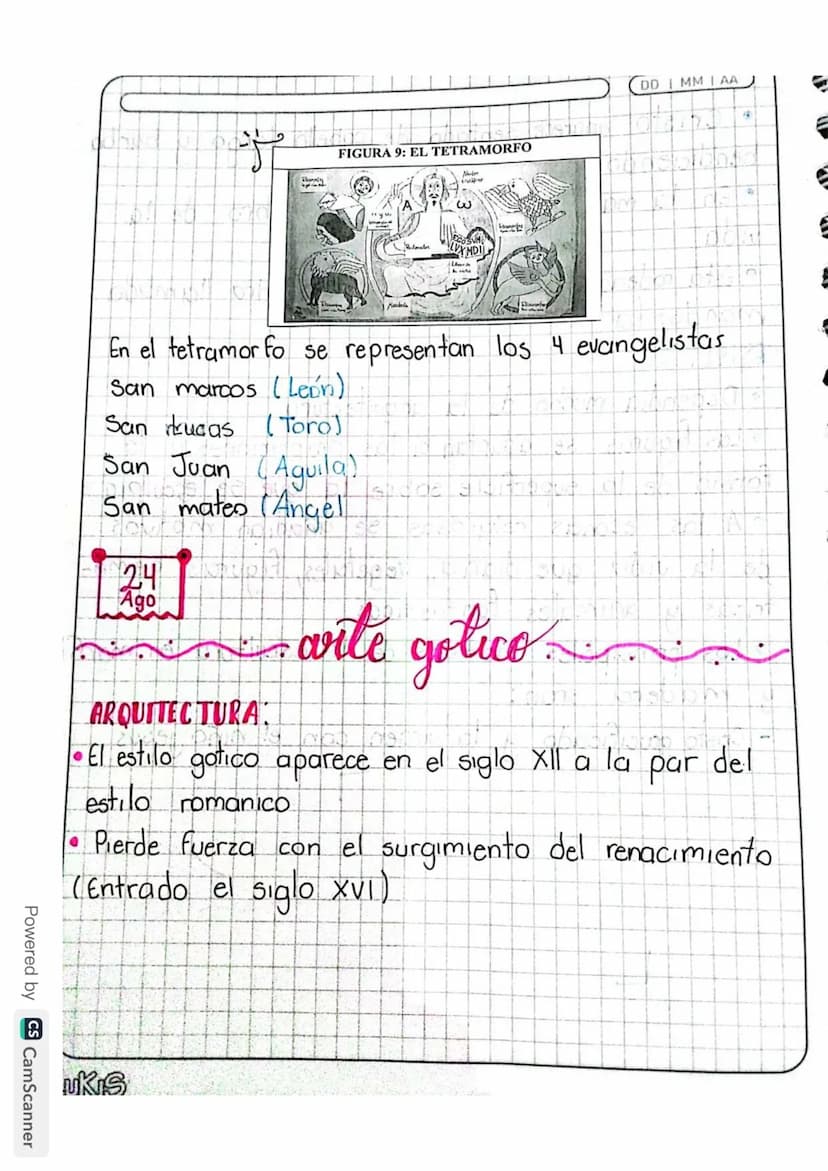 DD | MM | AA
FIGURA 9: EL TETRAMORFO
A
ω
En el tetramorfo se representan los 4 evangelistas
San marcos (León)
San Lucas (Toro)
San Juan (Aguila)
San mateo (Ángel
24
Ago
arte gotico
ARQUITECTURA:
• El estilo gotico aparece en el siglo XII a la par del
estilo romanico
• Pierde fuerza con el surgimiento del renacimiento
(Entrado el siglo XVI)
Powered by CS CamScanner